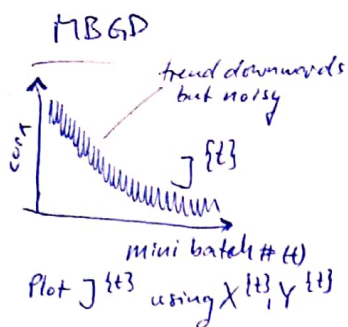 MBGD
trend downwards
but noisy
cost
J^{t}
mini batch # (t)
Plot J^{t} using X^{t}, Y^{t}